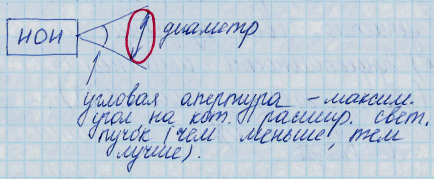 НОН
диаметр
угловая апертура – максим.
угол на кот. расшир. свет.
пучок (чем меньше, тем
лучше).